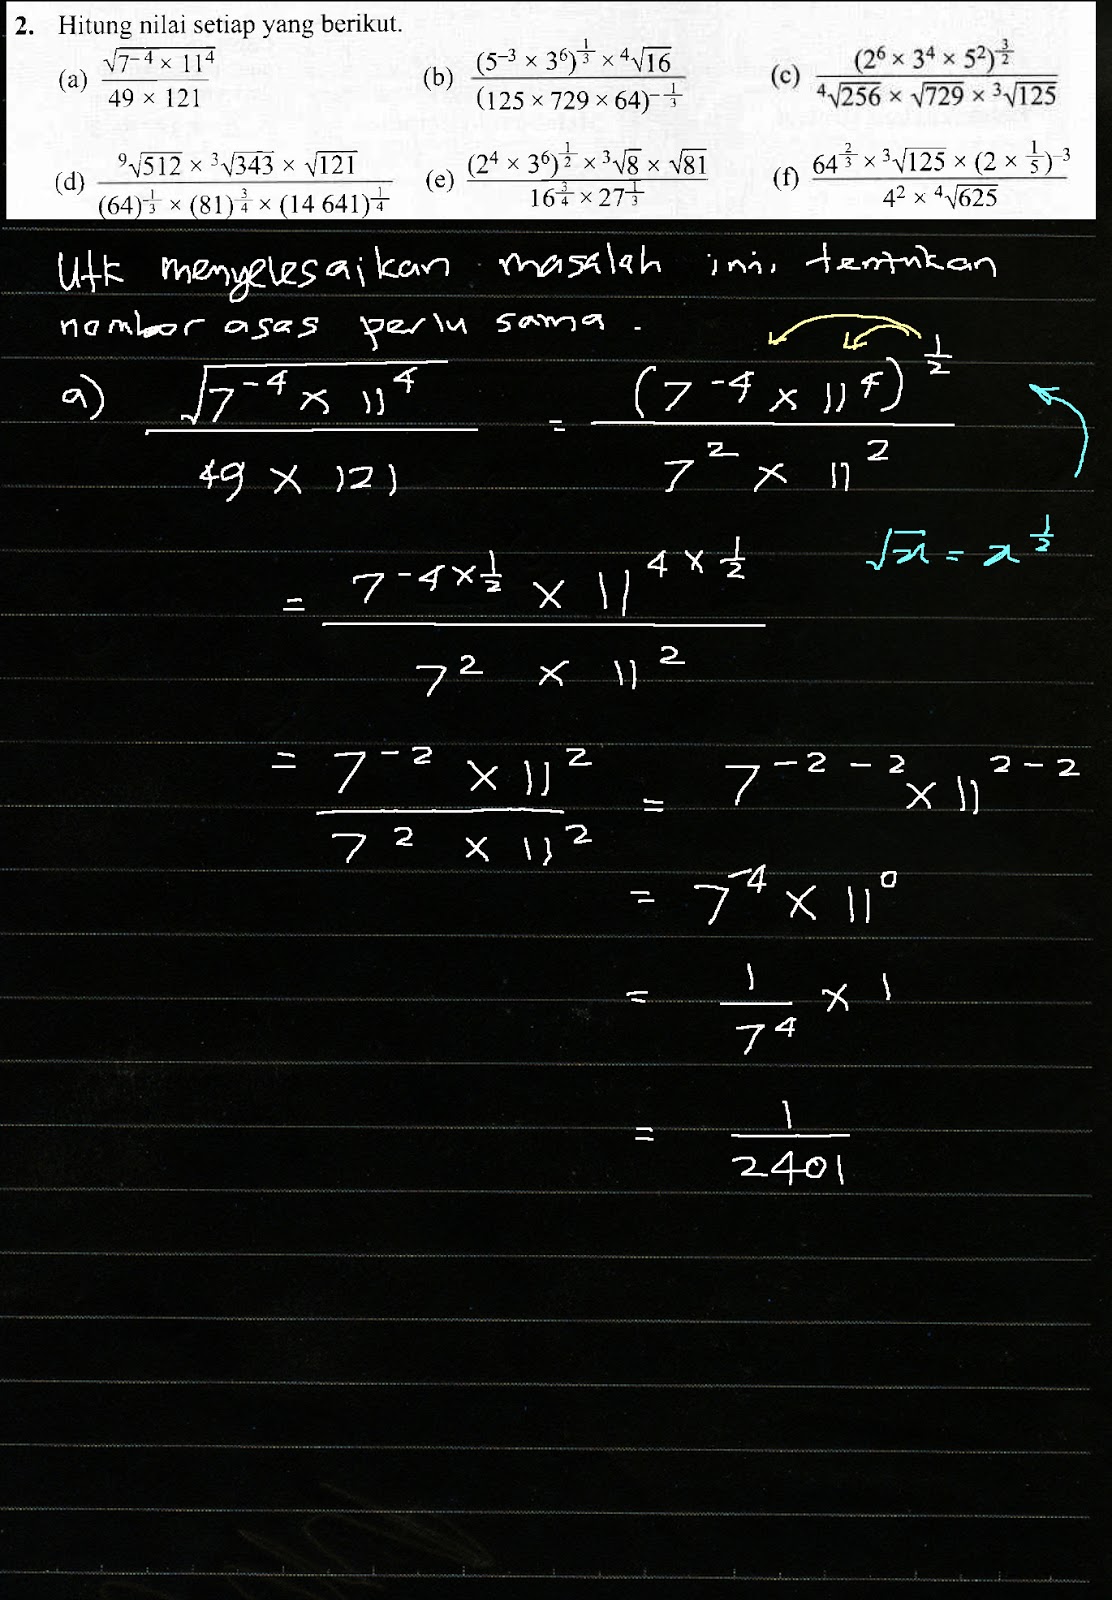 2. Hitung nilai setiap yang berikut.
(a) √(7⁻⁴ × 11⁴) / (49 × 121)
(b) (5⁻³ × 3⁶)^(1/3) × ⁴√16 / (125 × 729 × 64)^(-1/3)
(c) (2⁶ × 3⁴ × 5²)^(3/2) / (⁴√256 × √729 × ³√125)
(d) ⁹√512 × ³√343 × √121 / ((64)^(1/3) × (81)^(3/4) × (14 641)^(1/4))
(e) (2⁴ × 3⁶)^(1/2) × ³√8 × √81 / (16^(3/4) × 27^(1/3))
(f) 64^(2/3) × ³√125 × (2 × 1/5)⁻³ / (4² × ⁴√625)
Utk menyelesaikan masalah ini, tentukan
nombor asas perlu sama.
a) √(7⁻⁴ × 11⁴) / (49 × 121) = (7⁻⁴ × 11⁴)^(1/2) / (7² × 11²)
√x = x^(1/2)
= 7^(-4 × 1/2) × 11^(4 × 1/2) / (7² × 11²)
= 7⁻² × 11² / (7² × 11²) = 7^(-2-2) × 11^(2-2)
= 7⁻⁴ × 11⁰
= 1/7⁴ × 1
= 1/2401